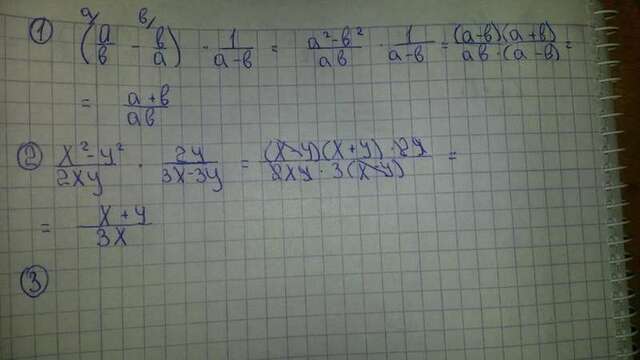 ① (a/b - b/a) · 1/(a-b) = (a²-b²)/(ab) · 1/(a-b) = ((a-b)(a+b))/(ab·(a-b)) =
= (a+b)/(ab)
② (x²-y²)/(2xy) · 2y/(3x-3y) = ((x-y)(x+y)·2y)/(2xy·3(x-y)) =
= (x+y)/(3x)
③